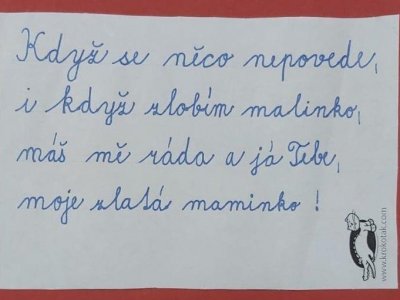 Když se něco nepovede,
i když zlobím malinko,
máš mě ráda a já Tebe,
moje zlatá maminko !
www.krokotak.com